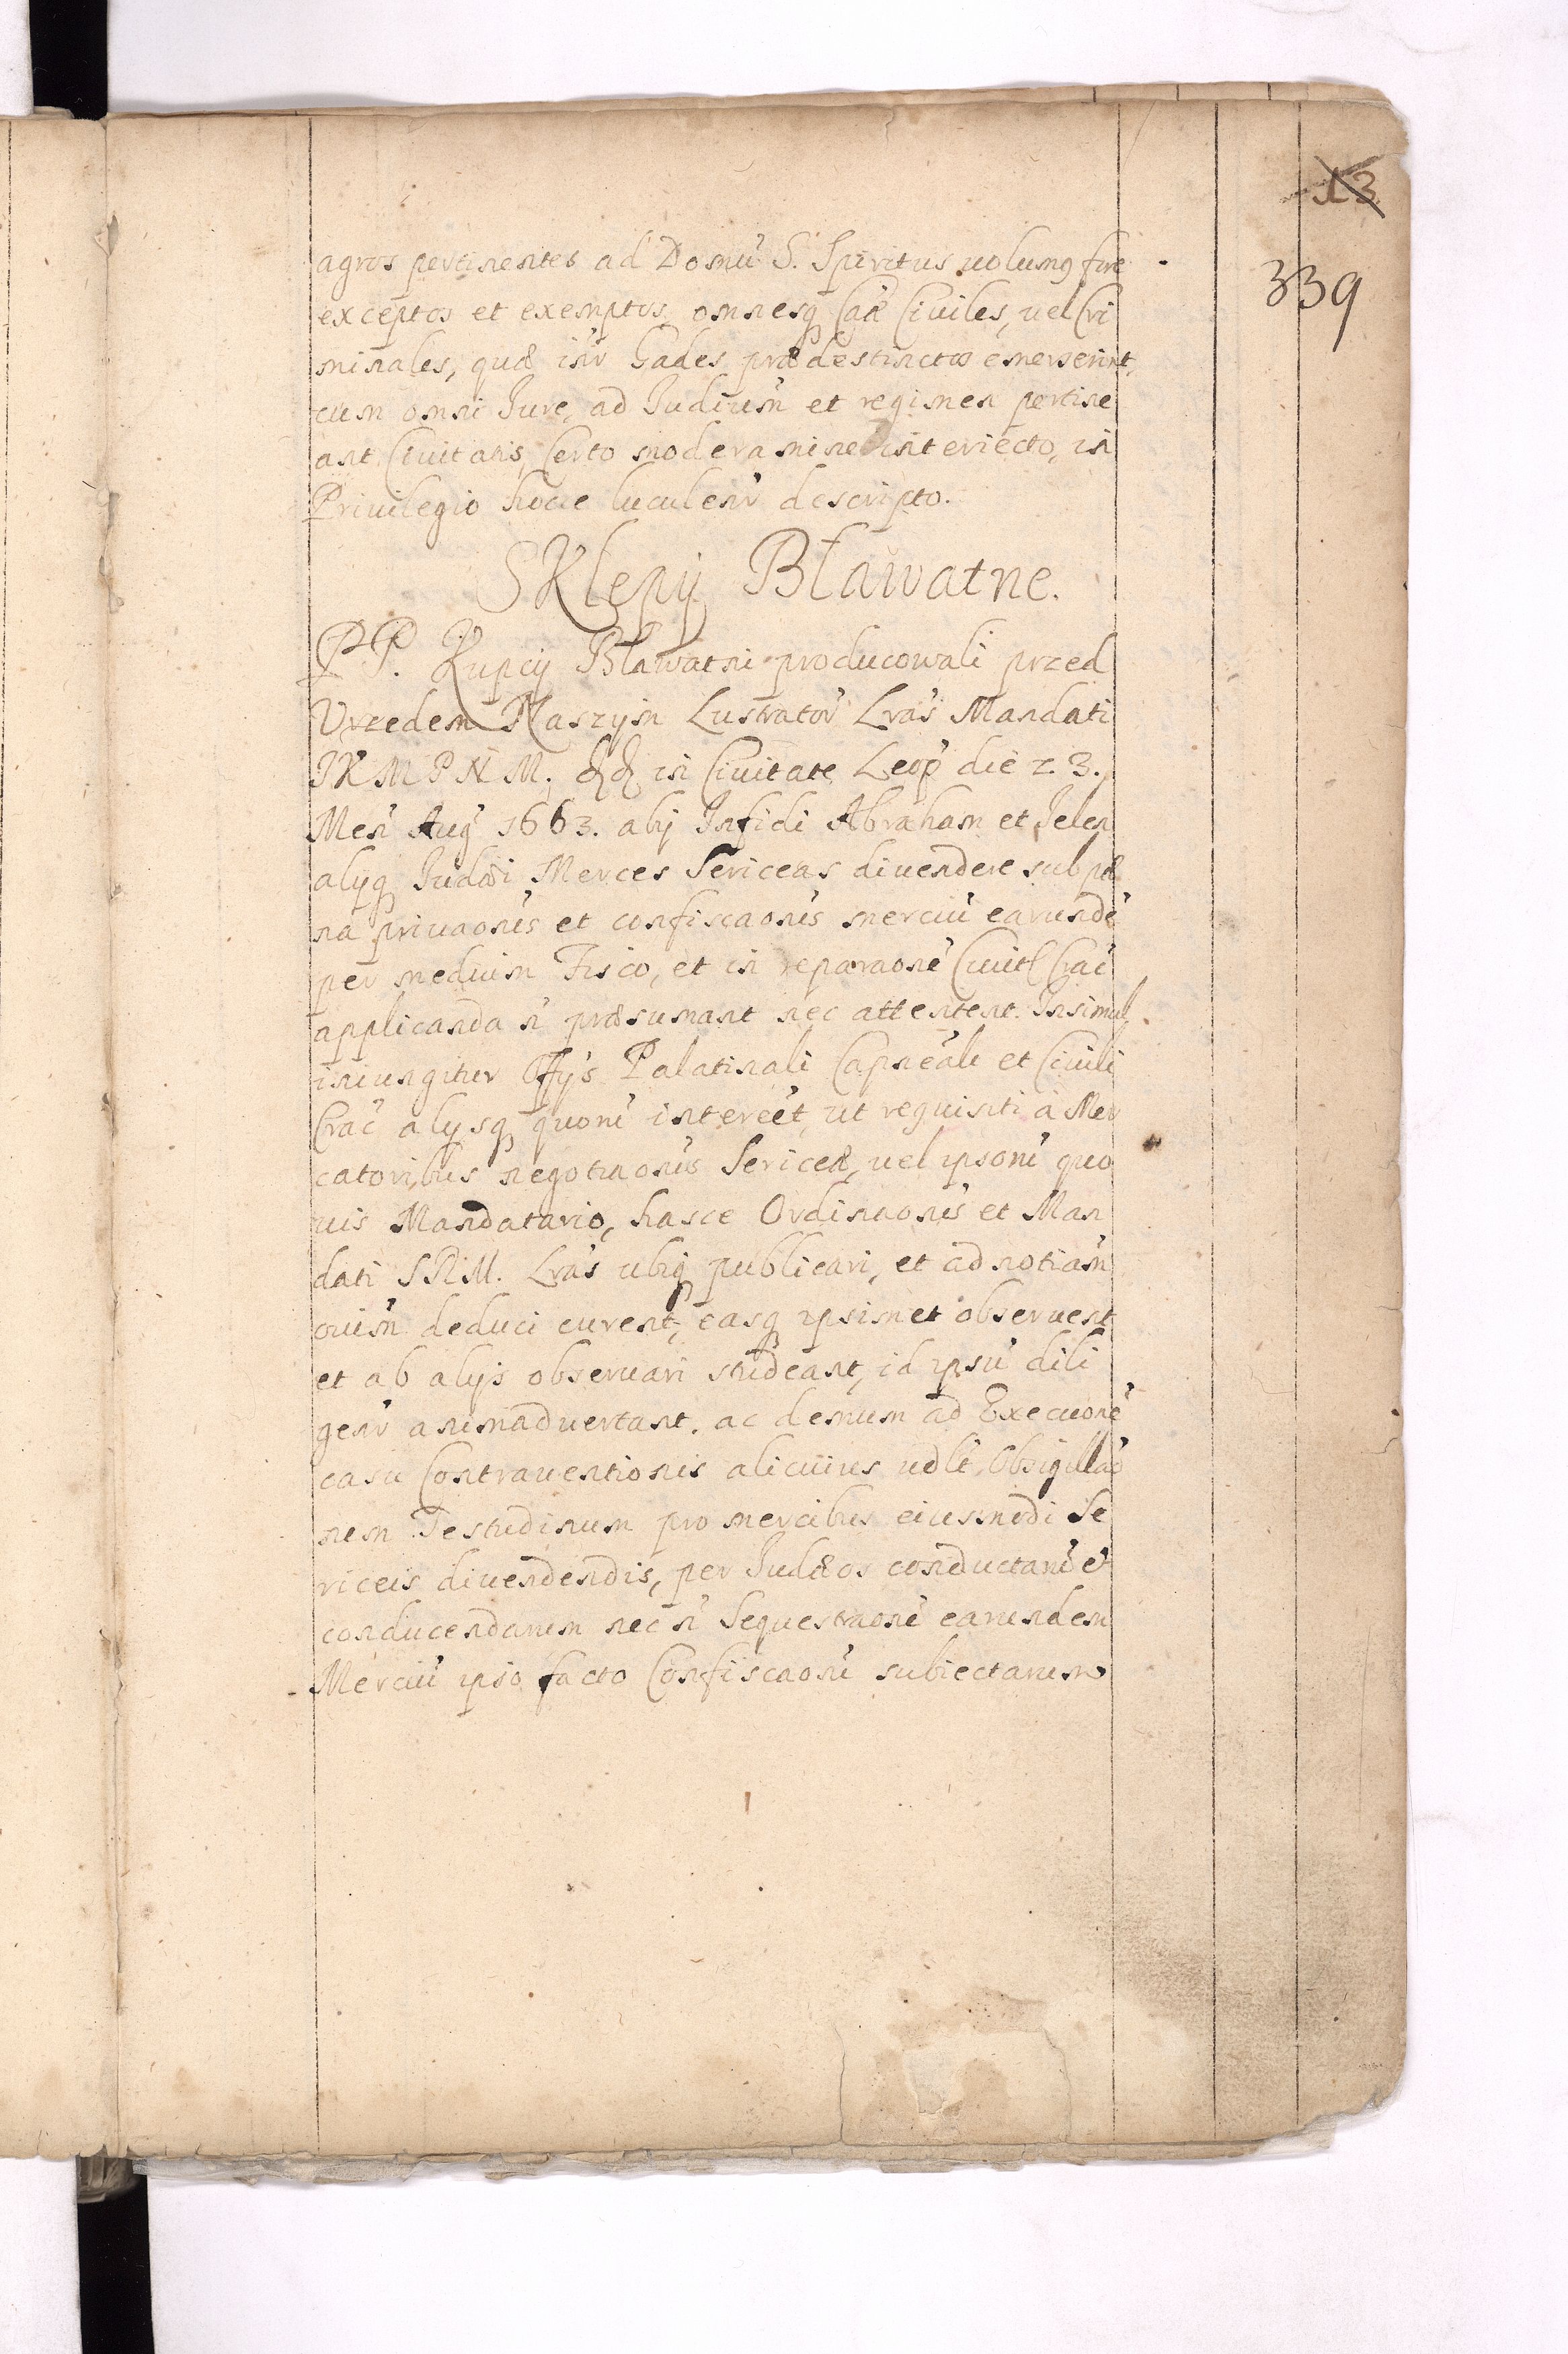 13
339
agros pertinentes ad Domũ S. Spiritus uolumꝰ fire
exceptos et exemptos, omnesq Cãe Ciuiles, uel Cri
minales, quæ inr̃ Gades prædestinctas emerserint,
cum omni Jure, ad Judium̃ et regimen pertine
ant Ciuitatis, Certo moderamine interiecto, in
Priuilegio hocce luculenr̃ descripto.
Sklepÿ Bławatne.
PP. Kupcÿ Bławatni producowali przed
Vrzedem Naszÿm Lustrator̃ Lrãs Mandati
JKMPNM. in Ciuitate Leop̃ die 23.
Meñ Aug̃ 1663. abÿ Infidi Abraham et Jelen
alÿq Judæi Merces Sericeas diuendere sub pæ
na priuaonis̃ et confiscaonis̃ merciũ earundẽ
per medium Fisco, et in reparaonẽ Ciuitl Crac̃
applicanda ñ præsumant nec attentent. Insimul
iniungitur Offÿs Palatinali Capneãli et Ciuili
Crac̃ alÿsq quorũ intereẽt, ut requisiti à Mer
catoribus negotiaonis̃ Sericeæ, uel ipsorũ quo
uis Mandatario, hasce Ordinaonis̃ et Man
dati SRM. Lrãs ubiq publicari, et ad notiam̃
ouium̃ deduci curent, easq ipsimet obseruent
et ab alÿs obseruari studeant, id ipsũ dili
genr̃ animaduertant. ac demum ad Execuonẽ
casu Contrauentionis alicuius udlt Obsigillaõ
nem Testudinum pro mercibus eiusmodi Se
riceis diuendendis, per Judæos conductarũ et
conducendarum nec ñ Sequestraonẽ earundem
Merciũ ipso facto Confiscaoni subiectarum